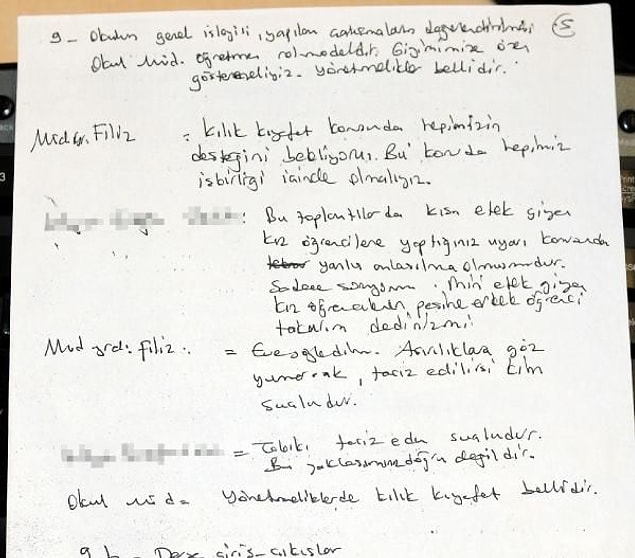 9- Okulun genel işleyişi, yapılan çalışmaların değerlendirilmesi (5)
Okul Müd. öğretmen rol modeldir. Giyimimize özen
göstermeliyiz. Yönetmelikler bellidir.
Müd. Yr. Filiz = Kılık kıyafet konusunda hepimizin
desteğini bekliyoruz. Bu konuda hepimiz
işbirliği içinde olmalıyız.
: Bu toplantılarda kısa etek giyen
kız öğrencilere yaptığınız uyarı konusunda
yanlış anlaşılma olmuşmudur.
Sadece soruyorum. Mini etek giyen
kız öğrencilerin peşine erkek öğrenci
takarım dedinizmi
Müd yrd. Filiz. = Evet söyledim. Aşırılıklara göz
yumarak, taciz edilirse kim
suçludur.
= Tabiki taciz eden suçludur.
Bu yaklaşımınız doğru değildir.
Okul Müd. Yönetmeliklerde kılık kıyafet bellidir.
9 b - Derse giriş-çıkışlar